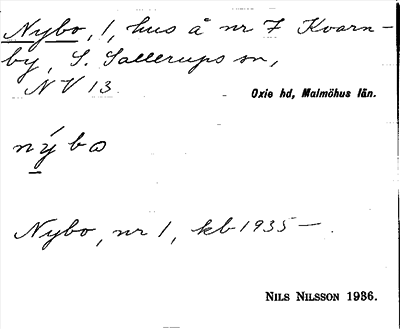 Nybo, 1, hus å nr 7 Kvarn-
by, S. Sallerups sn,
NV 13.
Oxie hd, Malmöhus län.
nýbo
Nybo, nr 1, kb 1935 —.
NILS NILSSON 1936.